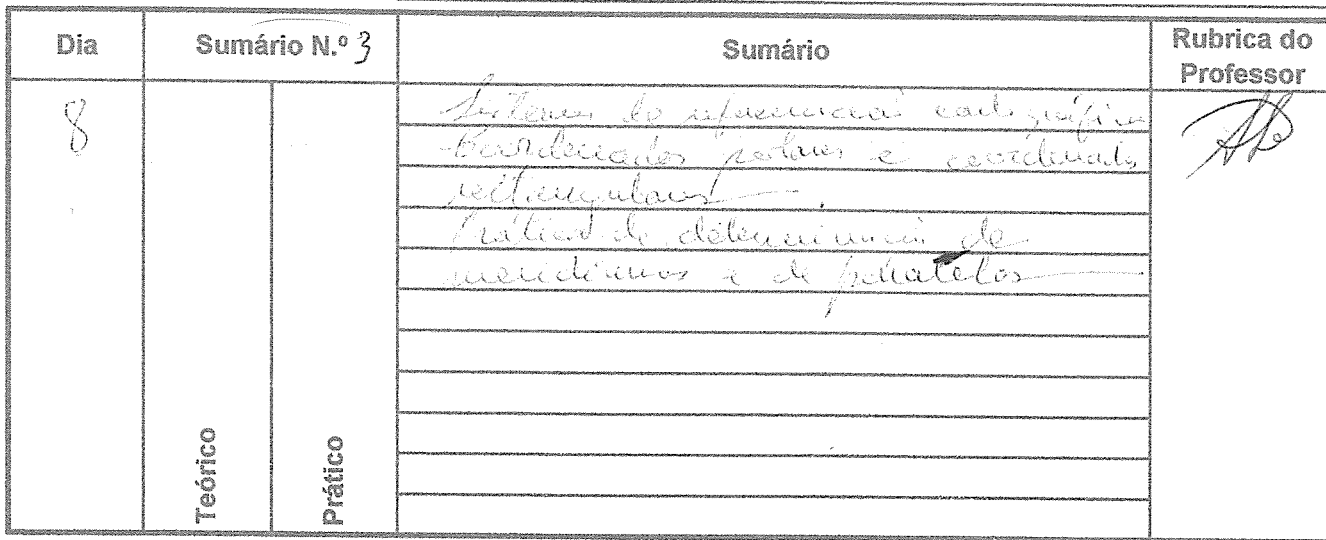 Dia
Sumário N.º 3
Sumário
Rubrica do
Professor
8
Sistemas de referenciai cartográfica
- Coordenadas polares e coordenadas
rectangulares
Prática de determinação de
meridianos e de paralelos
Teórico
Prático